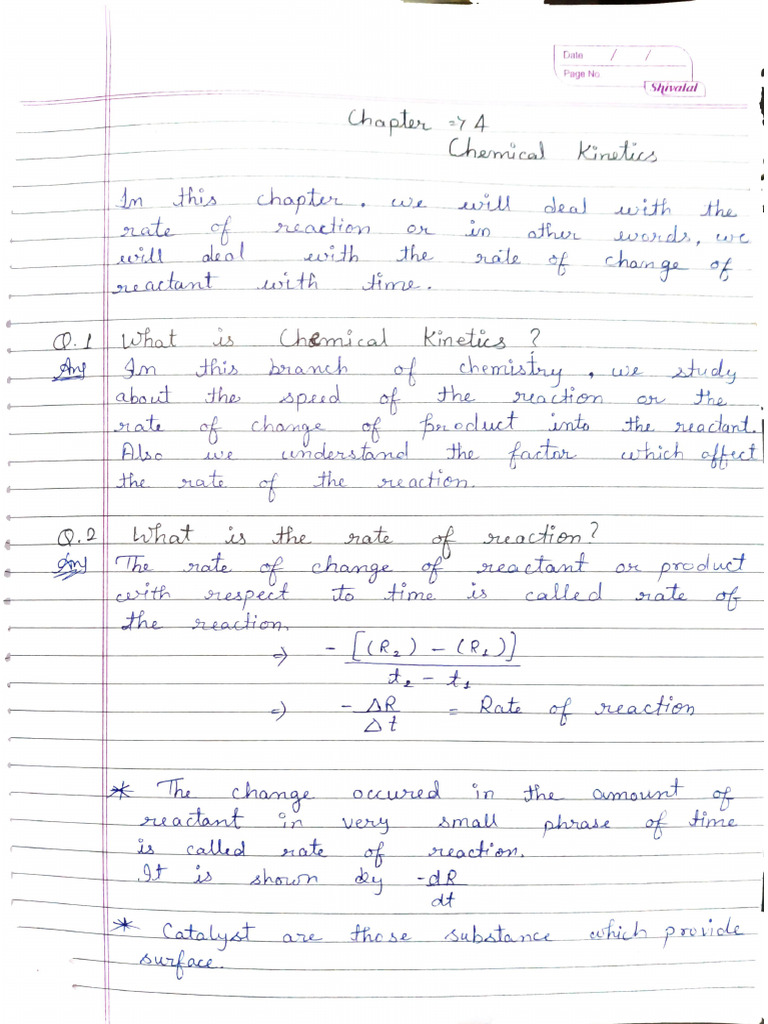 Date / /
Page No
Shivalal
Chapter => 4
Chemical Kinetics
In this chapter, we will deal with the
rate of reaction or in other words, we
will deal with the rate of change of
reactant with time.
Q.1 What is Chemical Kinetics ?
Ans In this branch of chemistry, we study
about the speed of the reaction or the
rate of change of product into the reactant.
Also we understand the factor which affect
the rate of the reaction.
Q.2 What is the rate of reaction?
Ans The rate of change of reactant or product
with respect to time is called rate of
the reaction.
=> - [(R₂) - (R₁)]
t₂ - t₁
=> - ΔR = Rate of reaction
Δt
* The change occured in the amount of
reactant in very small phrase of time
is called rate of reaction.
It is shown by -dR
dt
* Catalyst are those substance which provide
surface.